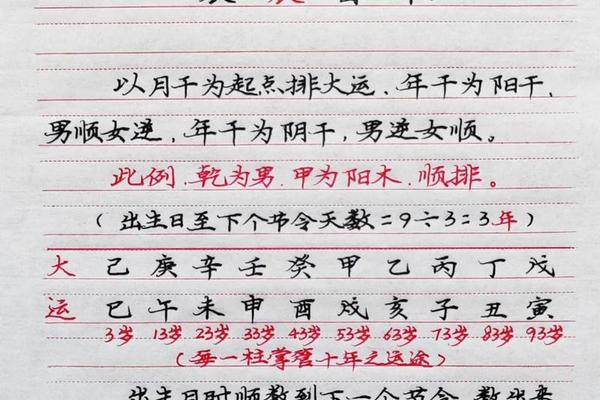 以月干为起点排大运.年干为阳干,
男顺女逆,年干为阴干,男逆女顺。
此例.乾为男.甲为阳木.顺排。
(出生日至下个节令天数=9÷3=3年)
大 己 庚 辛 壬 癸 甲 乙 丙 丁 戊
运 巳 午 未 申 酉 戌 亥 子 丑 寅
3岁 13岁 23岁 33岁 43岁 53岁 63岁 73岁 83岁 93岁
(每一柱掌管十年之运途)
出生日时顺数到下一个节令.数出来